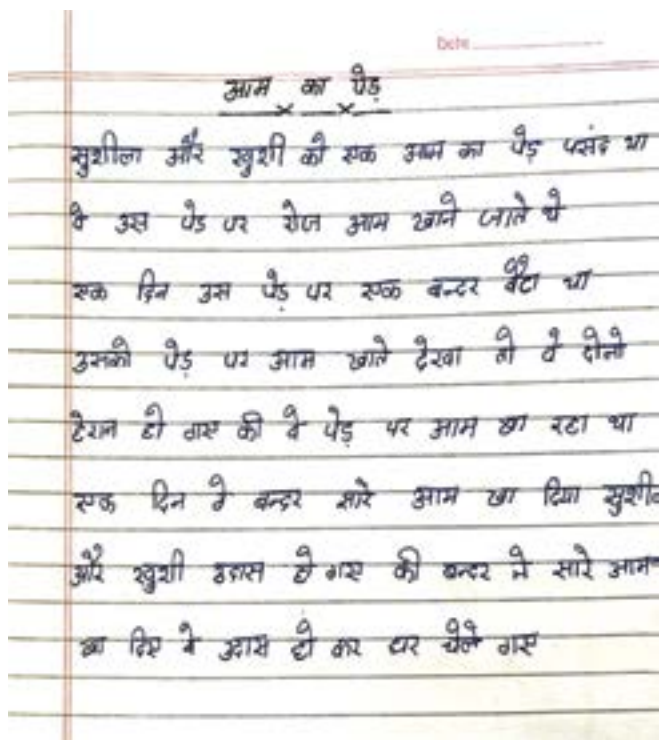 Date
आम का पेड़
सुशीला और खुशी को एक आम का पेड़ पसंद था
वे उस पेड पर रोज आम खाने जाते थे
एक दिन उस पेड़ पर एक बन्दर बैठा था
उसको पेड़ पर आम खाते देखा तो वे दोनो
हेरान हो गए की वे पेड़ पर आम खा रहा था
एक दिन वे बन्दर सारे आम खा दिया सुशील
और खुशी उदास हो गए की बन्दर ने सारे आम
खा दिए वे उदास हो कर घर चेले गए